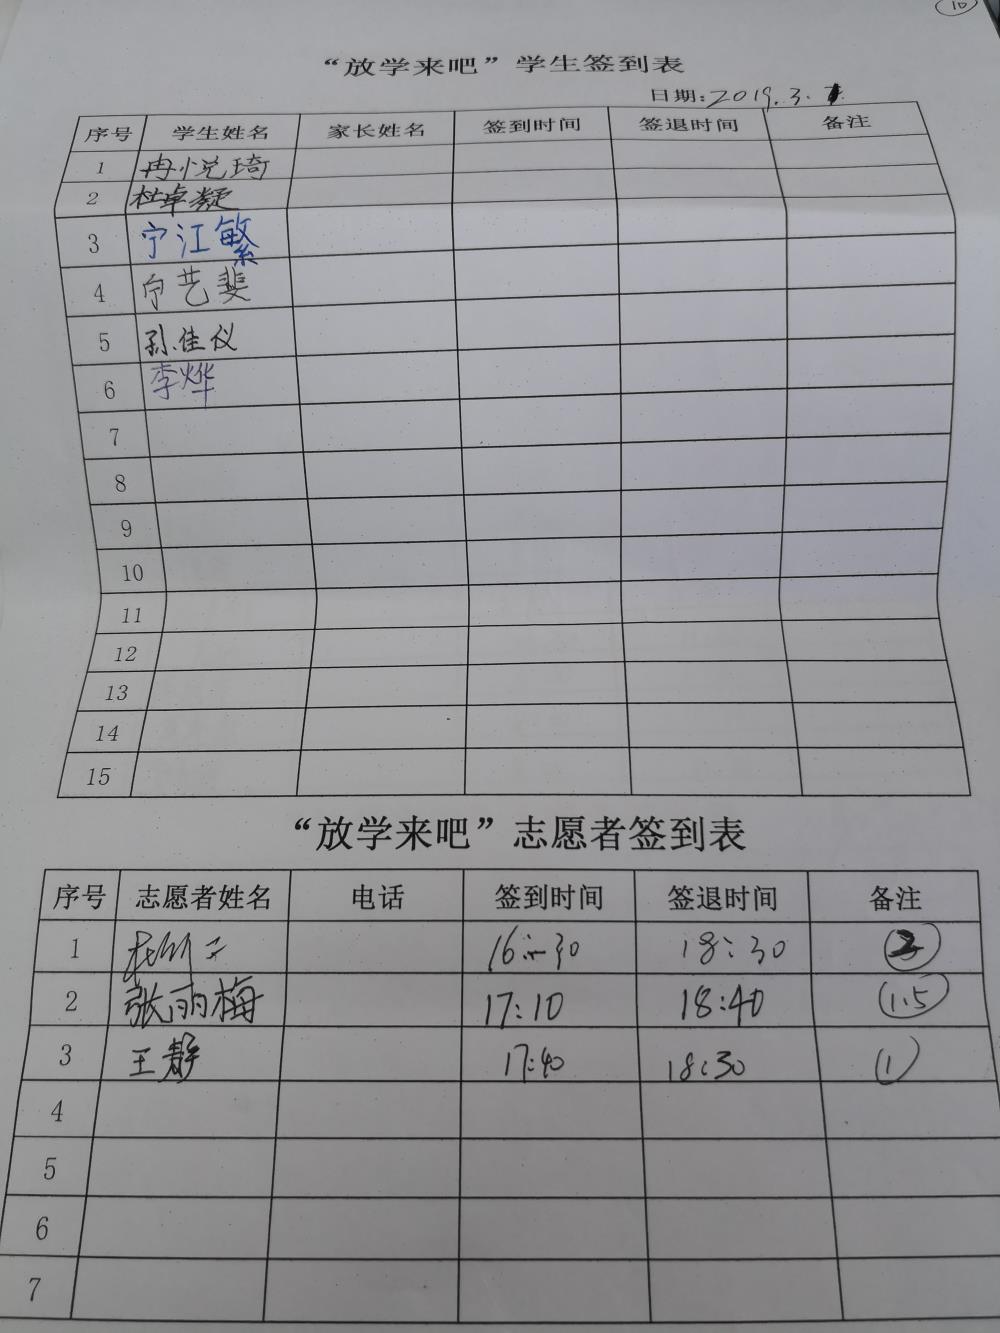 10
“放学来吧”学生签到表
日期:2019.3.
序号 学生姓名 家长姓名 签到时间 签退时间 备注
1 冉悦琦
2 杜卓凝
3 宁江繁
4 宁艺斐
5 孙佳仪
6 李烨
7
8
9
10
11
12
13
14
15
“放学来吧”志愿者签到表
序号 志愿者姓名 电话 签到时间 签退时间 备注
1 16:30 18:30 2
2 张雨梅 17:10 18:40 1.5
3 王静 17:40 18:30 1
4
5
6
7